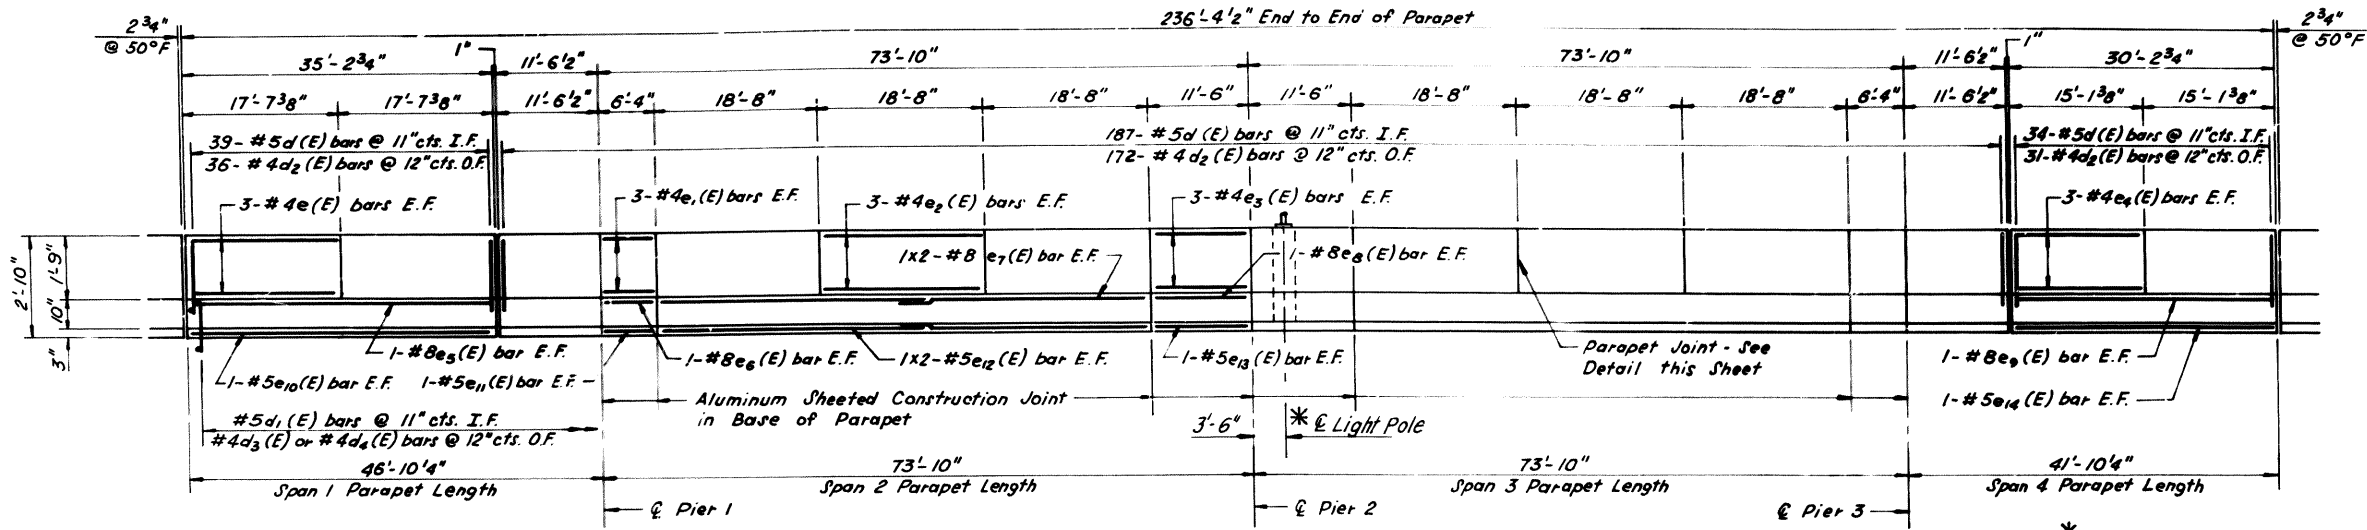 236'-4½" End to End of Parapet
2¾"
@ 50°F
2¾"
@ 50°F
1"
1"
35'-2¾"
11'-6½"
73'-10"
73'-10"
11'-6½"
30'-2¾"
17'-7⅜"
17'-7⅜"
11'-6½"
6'-4"
18'-8"
18'-8"
18'-8"
11'-6"
11'-6"
18'-8"
18'-8"
18'-8"
6'-4"
11'-6½"
15'-1⅜"
15'-1⅜"
39-#5d(E) bars @ 11" cts. I.F.
36-#4d₂(E) bars @ 12" cts. O.F.
187-#5d(E) bars @ 11" cts. I.F.
172-#4d₂(E) bars @ 12" cts. O.F.
34-#5d(E) bars @ 11" cts. I.F.
31-#4d₂(E) bars @ 12" cts. O.F.
3-#4e(E) bars E.F.
3-#4e₁(E) bars E.F.
3-#4e₂(E) bars E.F.
3-#4e₃(E) bars E.F.
3-#4e₄(E) bars E.F.
2'-10"
1'-9"
10"
3"
1x2-#8 e₇(E) bar E.F.
1-#8e₈(E) bar E.F.
1-#8e₅(E) bar E.F.
1-#8e₆(E) bar E.F.
1x2-#5e₁₂(E) bar E.F.
1-#5e₁₃(E) bar E.F.
Parapet Joint - See
Detail this Sheet
1-#8e₉(E) bar E.F.
1-#5e₁₀(E) bar E.F.
1-#5e₁₁(E) bar E.F.
1-#5e₁₄(E) bar E.F.
Aluminum Sheeted Construction Joint
in Base of Parapet
#5d₁(E) bars @ 11" cts. I.F.
#4d₃(E) or #4d₄(E) bars @ 12" cts. O.F.
3'-6"
* ℄ Light Pole
46'-10¼"
Span 1 Parapet Length
73'-10"
Span 2 Parapet Length
73'-10"
Span 3 Parapet Length
41'-10¼"
Span 4 Parapet Length
℄ Pier 1
℄ Pier 2
℄ Pier 3
*